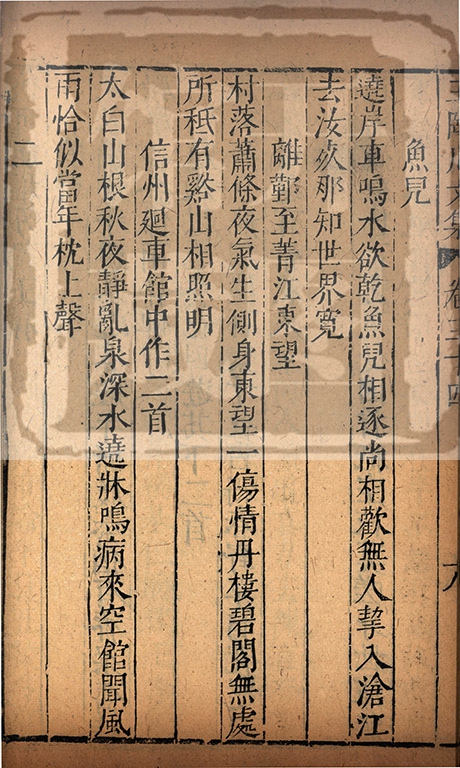 王臨川文集 卷三十四 八
魚兒
遶岸車鳴水欲乾魚兒相逐尚相歡無人挈入滄江
去汝死那知世界寬
離鄞至菁江東望
村落蕭條夜氣生側身東望一傷情丹樓碧閣無處
所秪有谿山相照明
信州廻車館中作二首
太白山根秋夜靜亂泉深水遶牀鳴病來空館聞風
雨恰似當年枕上聲
二